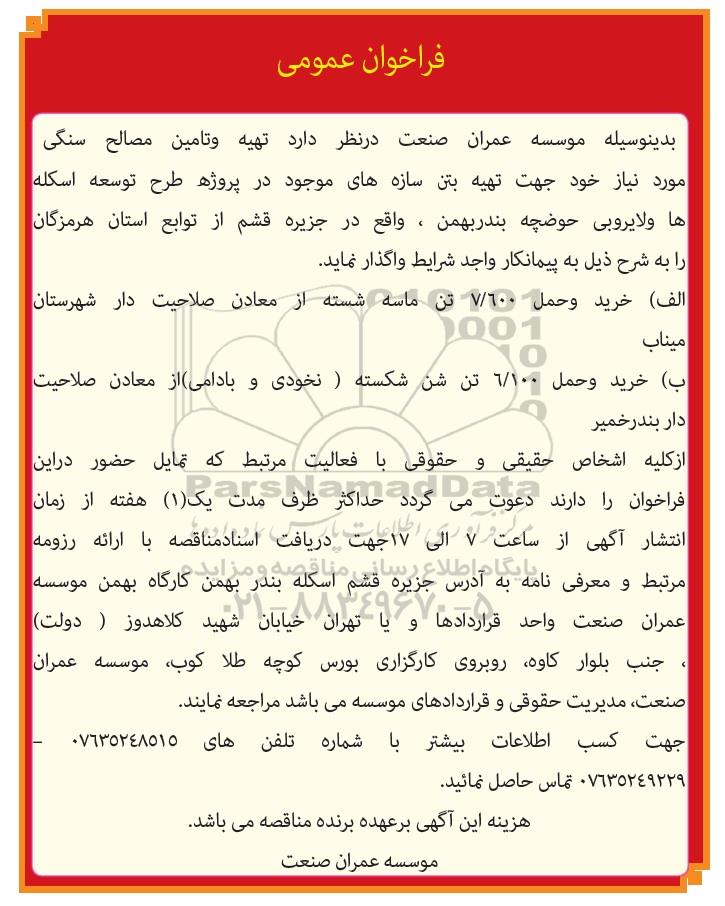 فراخوان عمومی
بدینوسیله موسسه عمران صنعت درنظر دارد تهیه وتامین مصالح سنگی
مورد نیاز خود جهت تهیه بتن سازه های موجود در پروژه طرح توسعه اسکله
ها ولایروبی حوضچه بندربهمن ، واقع در جزیره قشم از توابع استان هرمزگان
را به شرح ذیل به پیمانکار واجد شرایط واگذار نماید.
الف) خرید وحمل ٧/٦٠٠ تن ماسه شسته از معادن صلاحیت دار شهرستان
میناب
ب) خرید وحمل ٦/١٠٠ تن شن شکسته ( نخودی و بادامی)از معادن صلاحیت
دار بندرخمیر
ازکلیه اشخاص حقیقی و حقوقی با فعالیت مرتبط که تمایل حضور دراین
فراخوان را دارند دعوت می گردد حداکثر ظرف مدت یک(١) هفته از زمان
انتشار آگهی از ساعت ٧ الی ١٧جهت دریافت اسنادمناقصه با ارائه رزومه
مرتبط و معرفی نامه به آدرس جزیره قشم اسکله بندر بهمن کارگاه بهمن موسسه
عمران صنعت واحد قراردادها و یا تهران خیابان شهید کلاهدوز ( دولت)
، جنب بلوار کاوه، روبروی کارگزاری بورس کوچه طلا کوب، موسسه عمران
صنعت، مدیریت حقوقی و قراردادهای موسسه می باشد مراجعه نمایند.
جهت کسب اطلاعات بیشتر با شماره تلفن های ٠٧٦٣٥٢٤٨٥١٥ –
٠٧٦٣٥٢٤٩٢٢٩ تماس حاصل نمائید.
هزینه این آگهی برعهده برنده مناقصه می باشد.
موسسه عمران صنعت
ParsNamadData
مرکز فرآوری اطلاعات پارس نماد داده ها
پایگاه اطلاع رسانی مناقصه و مزایده
۰۲۱-۸۸۳۴۹۶۷۰-۵